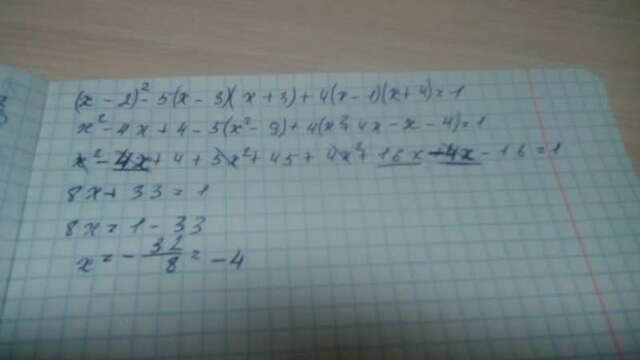 (x - 2)² - 5(x - 3)(x + 3) + 4(x - 1)(x + 4) = 1
x² - 4x + 4 - 5(x² - 9) + 4(x² + 4x - x - 4) = 1
x² - 4x + 4 + 5x² + 45 + 4x² + 16x - 4x - 16 = 1
8x + 33 = 1
8x = 1 - 33
x = - 32/8 = - 4